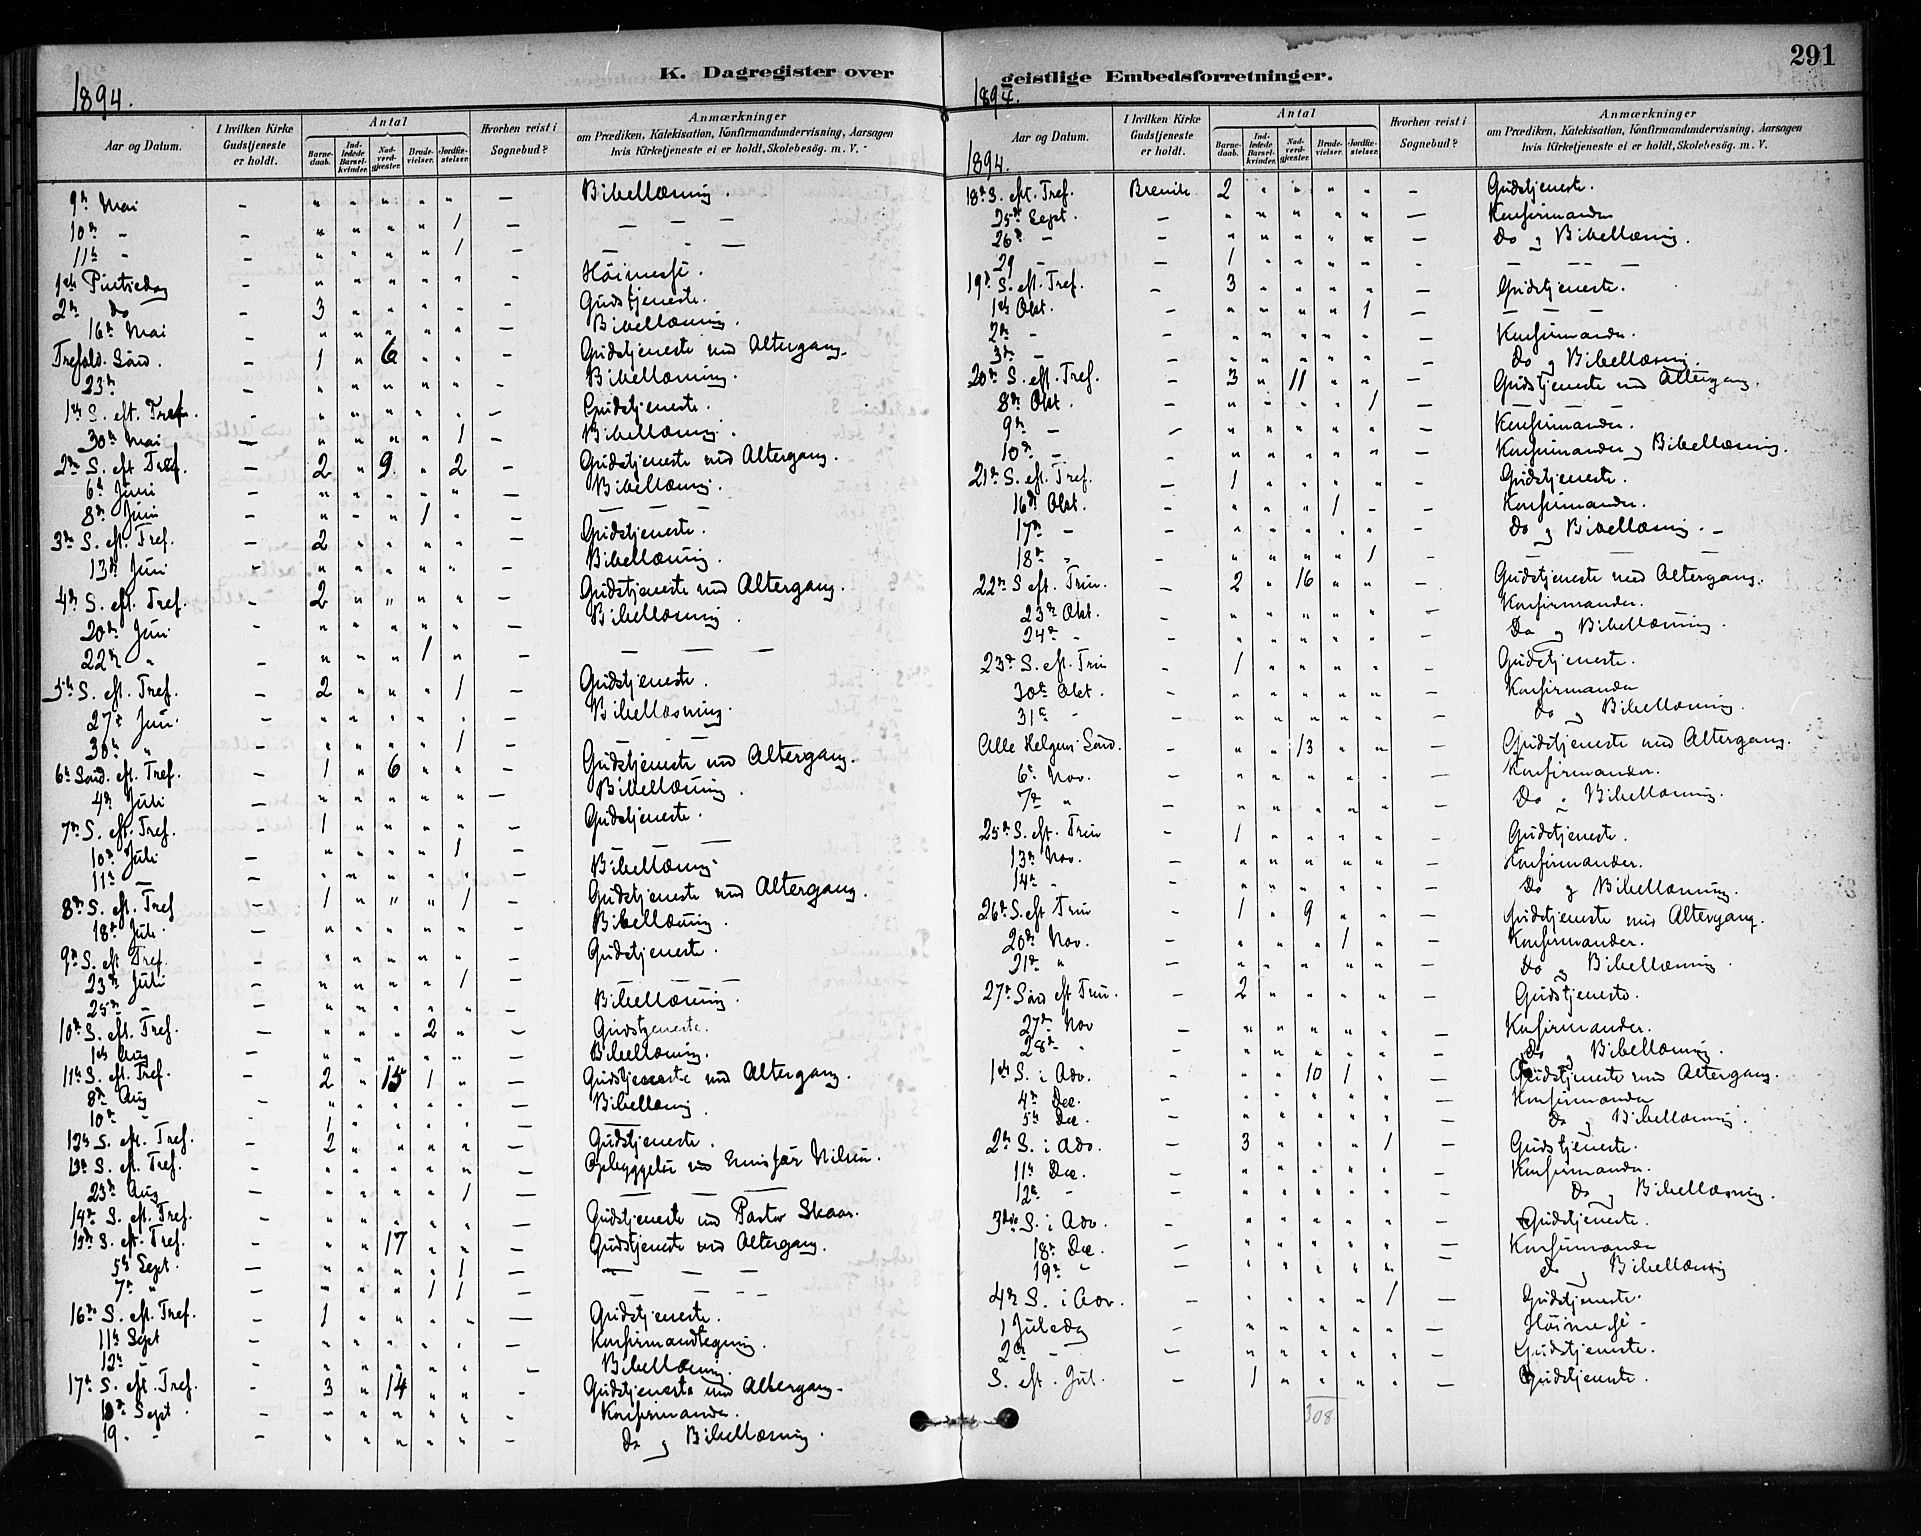 291
K. Dagregister over geistlige Embedsforretninger.
1894.
Aar og Datum. | I hvilken Kirke Gudstjeneste er holdt. | Antal | Barne-daab. | Ind-ledede Barsel-kvinder. | Nad-verd-gjester. | Brude-vielser. | Jordfæ-stelser. | Hvorhen reist i Sognebud? | Anmærkninger om Prædiken, Katekisation, Konfirmandundervisning, Aarsagen hvis Kirketjeneste ei er holdt, Skolebesög. m. V.
9de Mai – " " " " " – Bibellæsning.
10de – – " " " " 1 – – – –
11te " – " " " " 1 – – – –
1ste Pintsedag – " " " " " – Höimesse.
2den do – 3 " " " " – Gudstjeneste.
16de Mai – " " " " " – Bibellæsning.
Trefold. Sönd. – 1 " 6 " " – Gudstjeneste med Altergang.
23de – " " " " " – Bibellæsning.
1ste S. eft. Tref. – " " " " " – Gudstjeneste.
30te Mai – " " " " 1 – Bibellæsning.
2den S. eft Tref. – 2 " 9 " 2 – Gudstjeneste med Altergang.
6te Juni – " " " " " – Bibellæsning.
8de Juni – " " " 1 " – – – –
3die S. eft. Tref. – 2 " " " " – Gudstjeneste.
13de Juni – " " " " " – Bibellæsning.
4de S. eft. Tref. – 2 " " " " – Gudstjeneste med Altergang.
20de Juni – " " " " " – Bibellæsning.
22de " – " " " 1 " – – – –
5te S. eft. Tref. – 2 " " " 1 – Gudstjeneste.
27de Juni. – " " " " " – Bibellæsning.
30te " – " " " " 1 – – – –
6te Sönd. eft. Tref. – 1 " 6 " " – Gudstjeneste med Altergang.
4de Juli – " " " " " – Bibellæsning.
7de S. eft. Tref. – 1 " " " " – Gudstjeneste.
10de Juli – " " " " 1 – – – –
11te – – " " " " " – Bibellæsning.
8de S. eft. Tref – 1 " " " 1 – Gudstjeneste med Altergang.
18de Juli. – " " " " " – Bibellæsning.
9de S. eft Tref. – " " " " " – Gudstjeneste.
23de Juli – " " " " 1 – – – –
25de – – " " " " " – Bibellæsning.
10de S. eft. Tref. – " " " 2 " – Gudstjeneste.
1ste Aug – " " " " " – Bibellæsning.
11te S. eft. Tref. – 2 " 15 1 " – Gudstjeneste med Altergang.
8de Aug – " " " " " – Bibellæsning.
10de " – 1 " " " " – –
12te S. eft. Tref. – 2 " " " " – Gudstjeneste.
13de S. eft. Tref. – " " " " " – Opbyggelse ved Emissær Nilsen.
23de Aug – " " " " 1 – – – –
14de S. eft. Tref. – " " " " " – Gudstjeneste ved Pastor Skaar.
15de S. eft. Tref. – " " 17 " " – Gudstjeneste med Altergang.
5te Sept. – " " " " 1 – – – –
7de " – " " " 1 1 – – – –
16de S. eft. Tref. – 1 " " " " – Gudstjeneste.
11te Sept – " " " " " – Konfirmandtegning.
12te – – " " " " " – Bibellæsning.
17de S. eft. Tref. – 3 " 14 " " – Gudstjeneste med Altergang.
Sept. – " " " " " – Konfirmander.
19 – – " " " " " – Do og Bibellæsning.
1894.
Aar og Datum. | I hvilken Kirke Gudstjeneste er holdt. | Antal | Barne-daab. | Ind-ledede Barsel-kvinder. | Nad-verd-gjester. | Brude-vielser. | Jordfæ-stelser. | Hvorhen reist i Sognebud? | Anmærkninger om Prædiken, Katekisation, Konfirmandundervisning, Aarsagen hvis Kirketjeneste ei er holdt, Skolebesög. m. V.
1894.
18de S. eft. Tref. Brevik 2 " " " " – Gudstjeneste.
25de Sept. – " " " " " – Konfirmander
26de – – " " " " " – Do og Bibellæsning.
29 – – 1 " " " " – – – –
19de S. eft. Tref. – 3 " " " " – Gudstjeneste.
1ste Okt. – " " " " 1 – – – –
2den – – " " " " " – Konfirmander.
3die – – " " " " " – Do og Bibellæsning.
20de S. eft. Tref. – 3 " 11 " " – Gudstjeneste med Altergang.
8de Okt. – " " " " 1 – – – –
9de – – " " " " " – Konfirmander.
10de – – " " " " " – Konfirmander og Bibellæsning.
21de S. eft. Tref. – 1 " " " " – Gudstjeneste.
16de Okt. – " " " 1 " – Konfirmander.
17de – – " " " " " – Do og Bibellæsning. –
18de " – " " " " 1 – – – –
22de S eft. Trin. – 2 " 16 " " – Gudstjeneste med Altergang.
23de Okt. – " " " " " – Konfirmander.
24de " – " " " " " – Do og Bibellæsning.
23de S. eft. Trin – 1 " " " " – Gudstjeneste.
30te Okt. – " " " " " – Konfirmander
31te " – " " " " " – Do og Bibellæsning.
Alle Helgens Sönd. – " " 13 " " – Gudstjeneste med Altergang.
6te Nov. – " " " " " – Konfirmander.
7de " – " " " " " – Do " Bibellæsning.
25de S. eft. Trin – 1 " " " " – Gudstjeneste.
13de Nov. – " " " " " – Konfirmander.
14de " – " " " " " – Do og Bibellæsning.
26de S. eft Trin – 1 " 9 " " – Gudstjeneste med Altergang.
20de Nov. – " " " 1 " – Konfirmander.
21de " – " " " " " – Do og Bibellæsning.
27de Sönd eft Trin. – 2 " " " " – Gudstjeneste.
27de Nov – " " " " " – Konfirmander.
28de " – " " " " " – Do og Bibellæsning.
1ste S. i Adv. – " " 10 1 " – Gudstjeneste med Altergang.
4de Dec. – " " " " " – Konfirmander
5te Dec – " " " " " – Do og Bibellæsning.
2den S. i Adv. – 3 " " " 1 – Gudstjeneste.
11te Dec. – " " " " " – Konfirmander.
12te – – " " " " " – Do og Bibellæsning.
3die S. i Adv. – " " " " " – Gudstjeneste.
18de Dec. – " " " " " – Konfirmander
19de " – " " " " " – Do og Bibellæsning
4de S. i Adv. – " " " " 1 – Gudstjeneste.
1 Juledag – " " " " " – Höimesse –
2den – – " " " " " – Gudstjeneste.
S. eft. Jul. – 1 " " " " – Gudstjeneste.
308